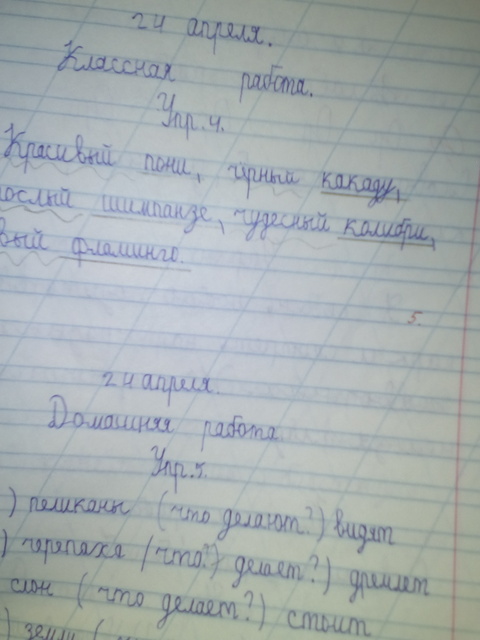 24 апреля.
Классная работа.
Упр.4.
Красивый пони, чёрный какаду,
рослый шимпанзе, чудесный колибри,
вый фламинго.
5.
24 апреля.
Домашняя работа
Упр.5.
) пеликаны (что делают?) видят
) черепаха (что?) делает?) дремлет
слон (что делает?) стоит
) земли (